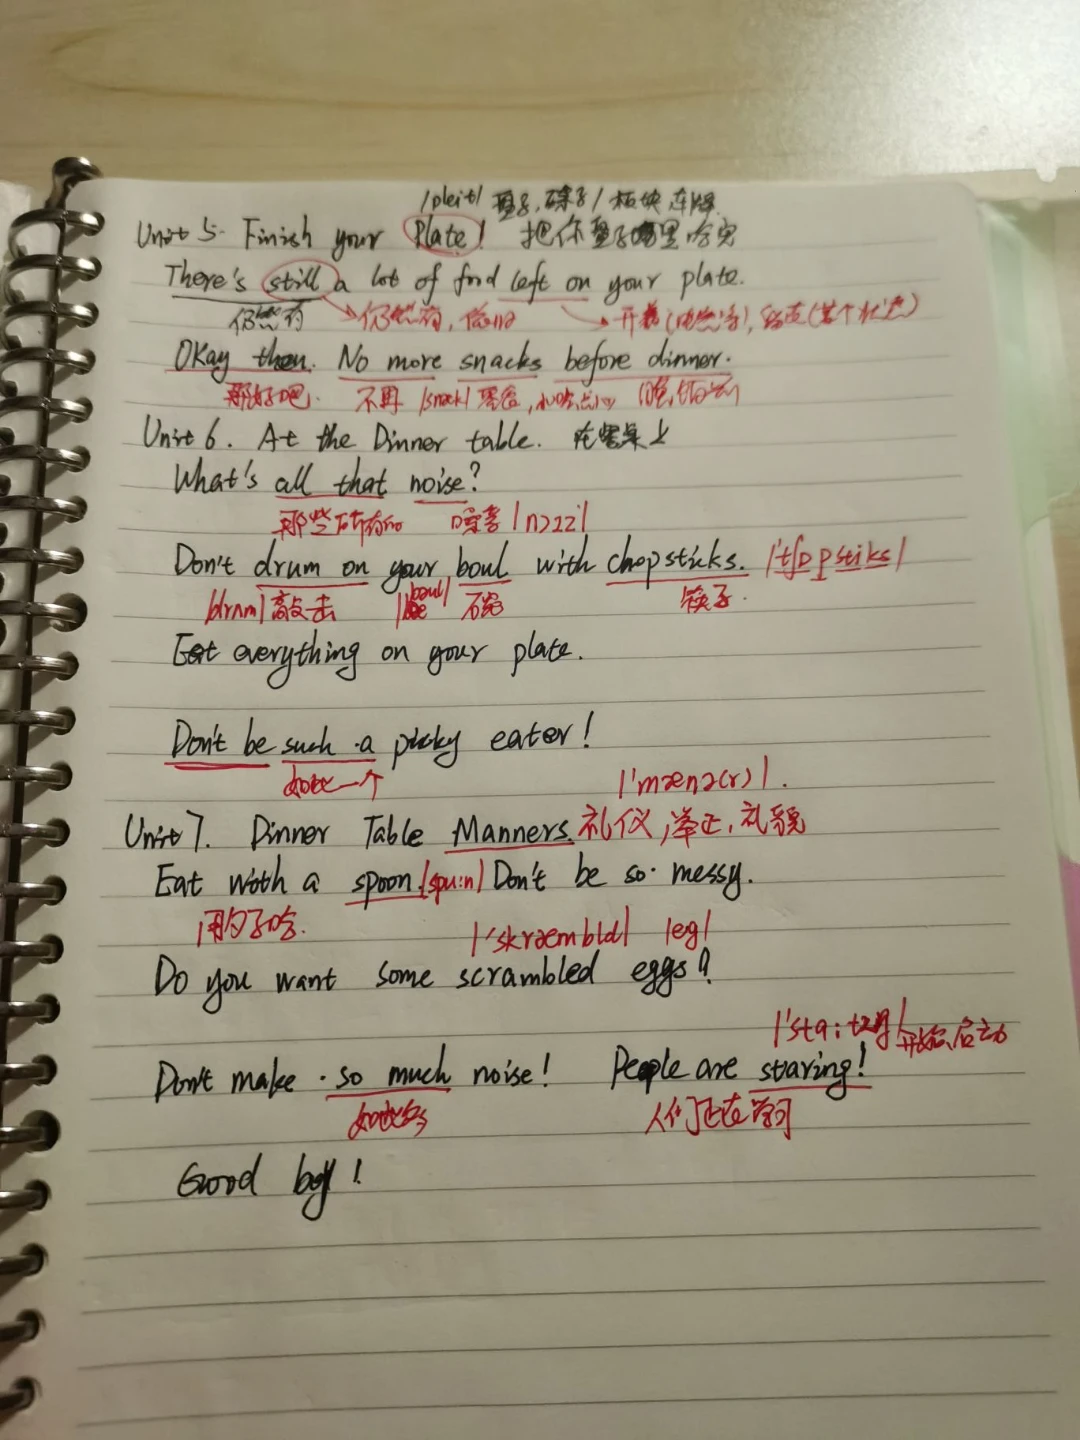 /pleit/ 盘子,碟子/板块
Unit 5. Finish your Plate! 把你盘子里吃完
There's still a lot of food left on your plate.
仍然有 仍然有,依旧 开着
Okay then. No more snacks before dinner.
那好吧. 不再 /snæk/ 零食,小吃,点心
Unit 6. At the Dinner table. 在餐桌上
What's all that noise?
那些所有的 噪音 /nɔɪz/
Don't drum on your boul with chopsticks. /'tʃɒpstiks/
/drʌm/ 敲击 /boul/ 碗 筷子.
Eat everything on your plate.
Don't be such a picky eater!
如此一个
/'mænə(r)/.
Unit 7. Dinner Table Manners. 礼仪,举止,礼貌
Eat with a spoon. /spu:n/ Don't be so messy.
用勺子吃.
/'skræmbld/ /eg/
Do you want some scrambled eggs?
开始,启动
Don't make so much noise! People are staring!
如此多 人们正在学习
Good boy!